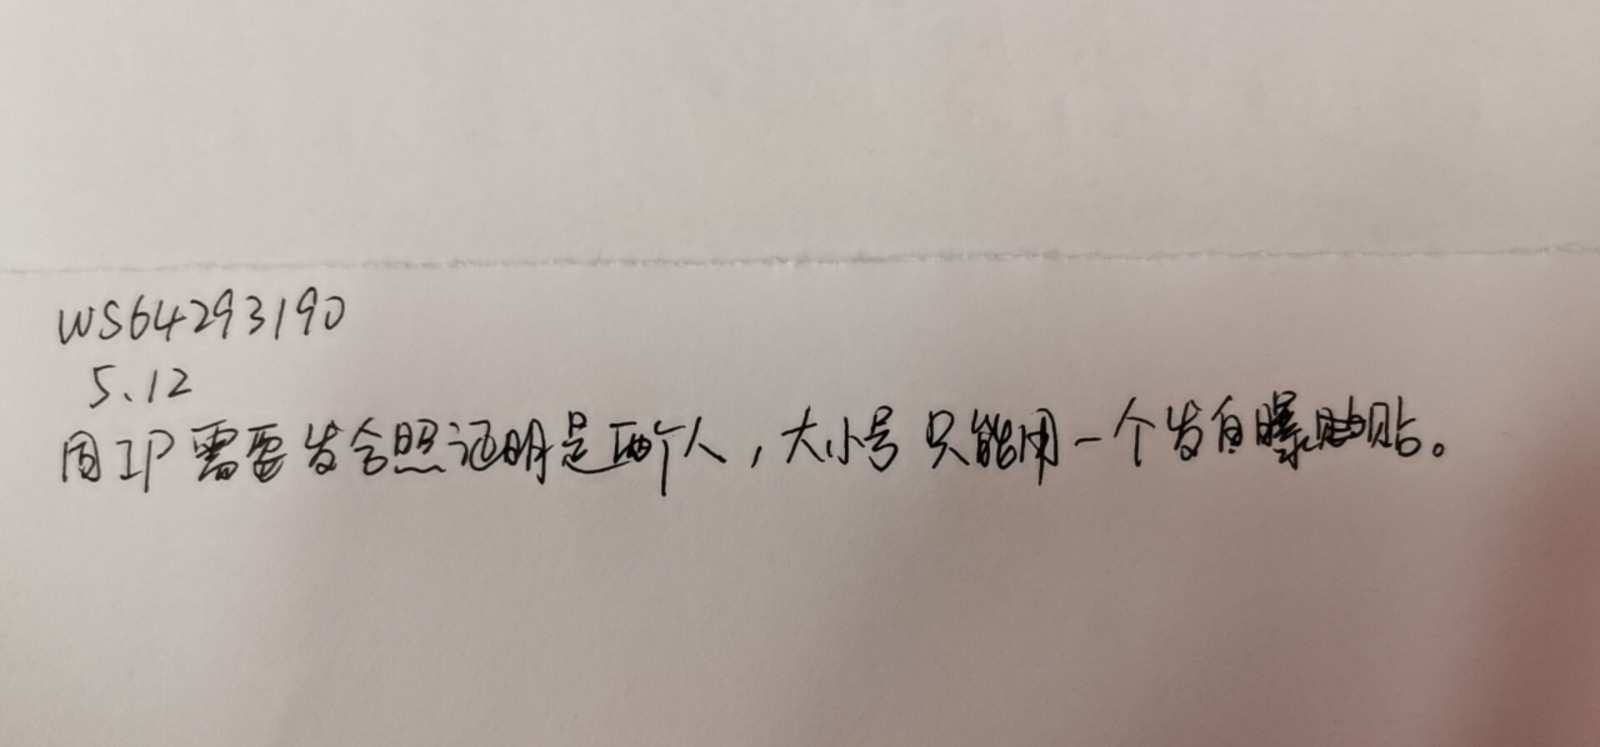 WS64293190
5.12
同IP需要发合照证明是两个人,大小号只能用一个发自曝贴。